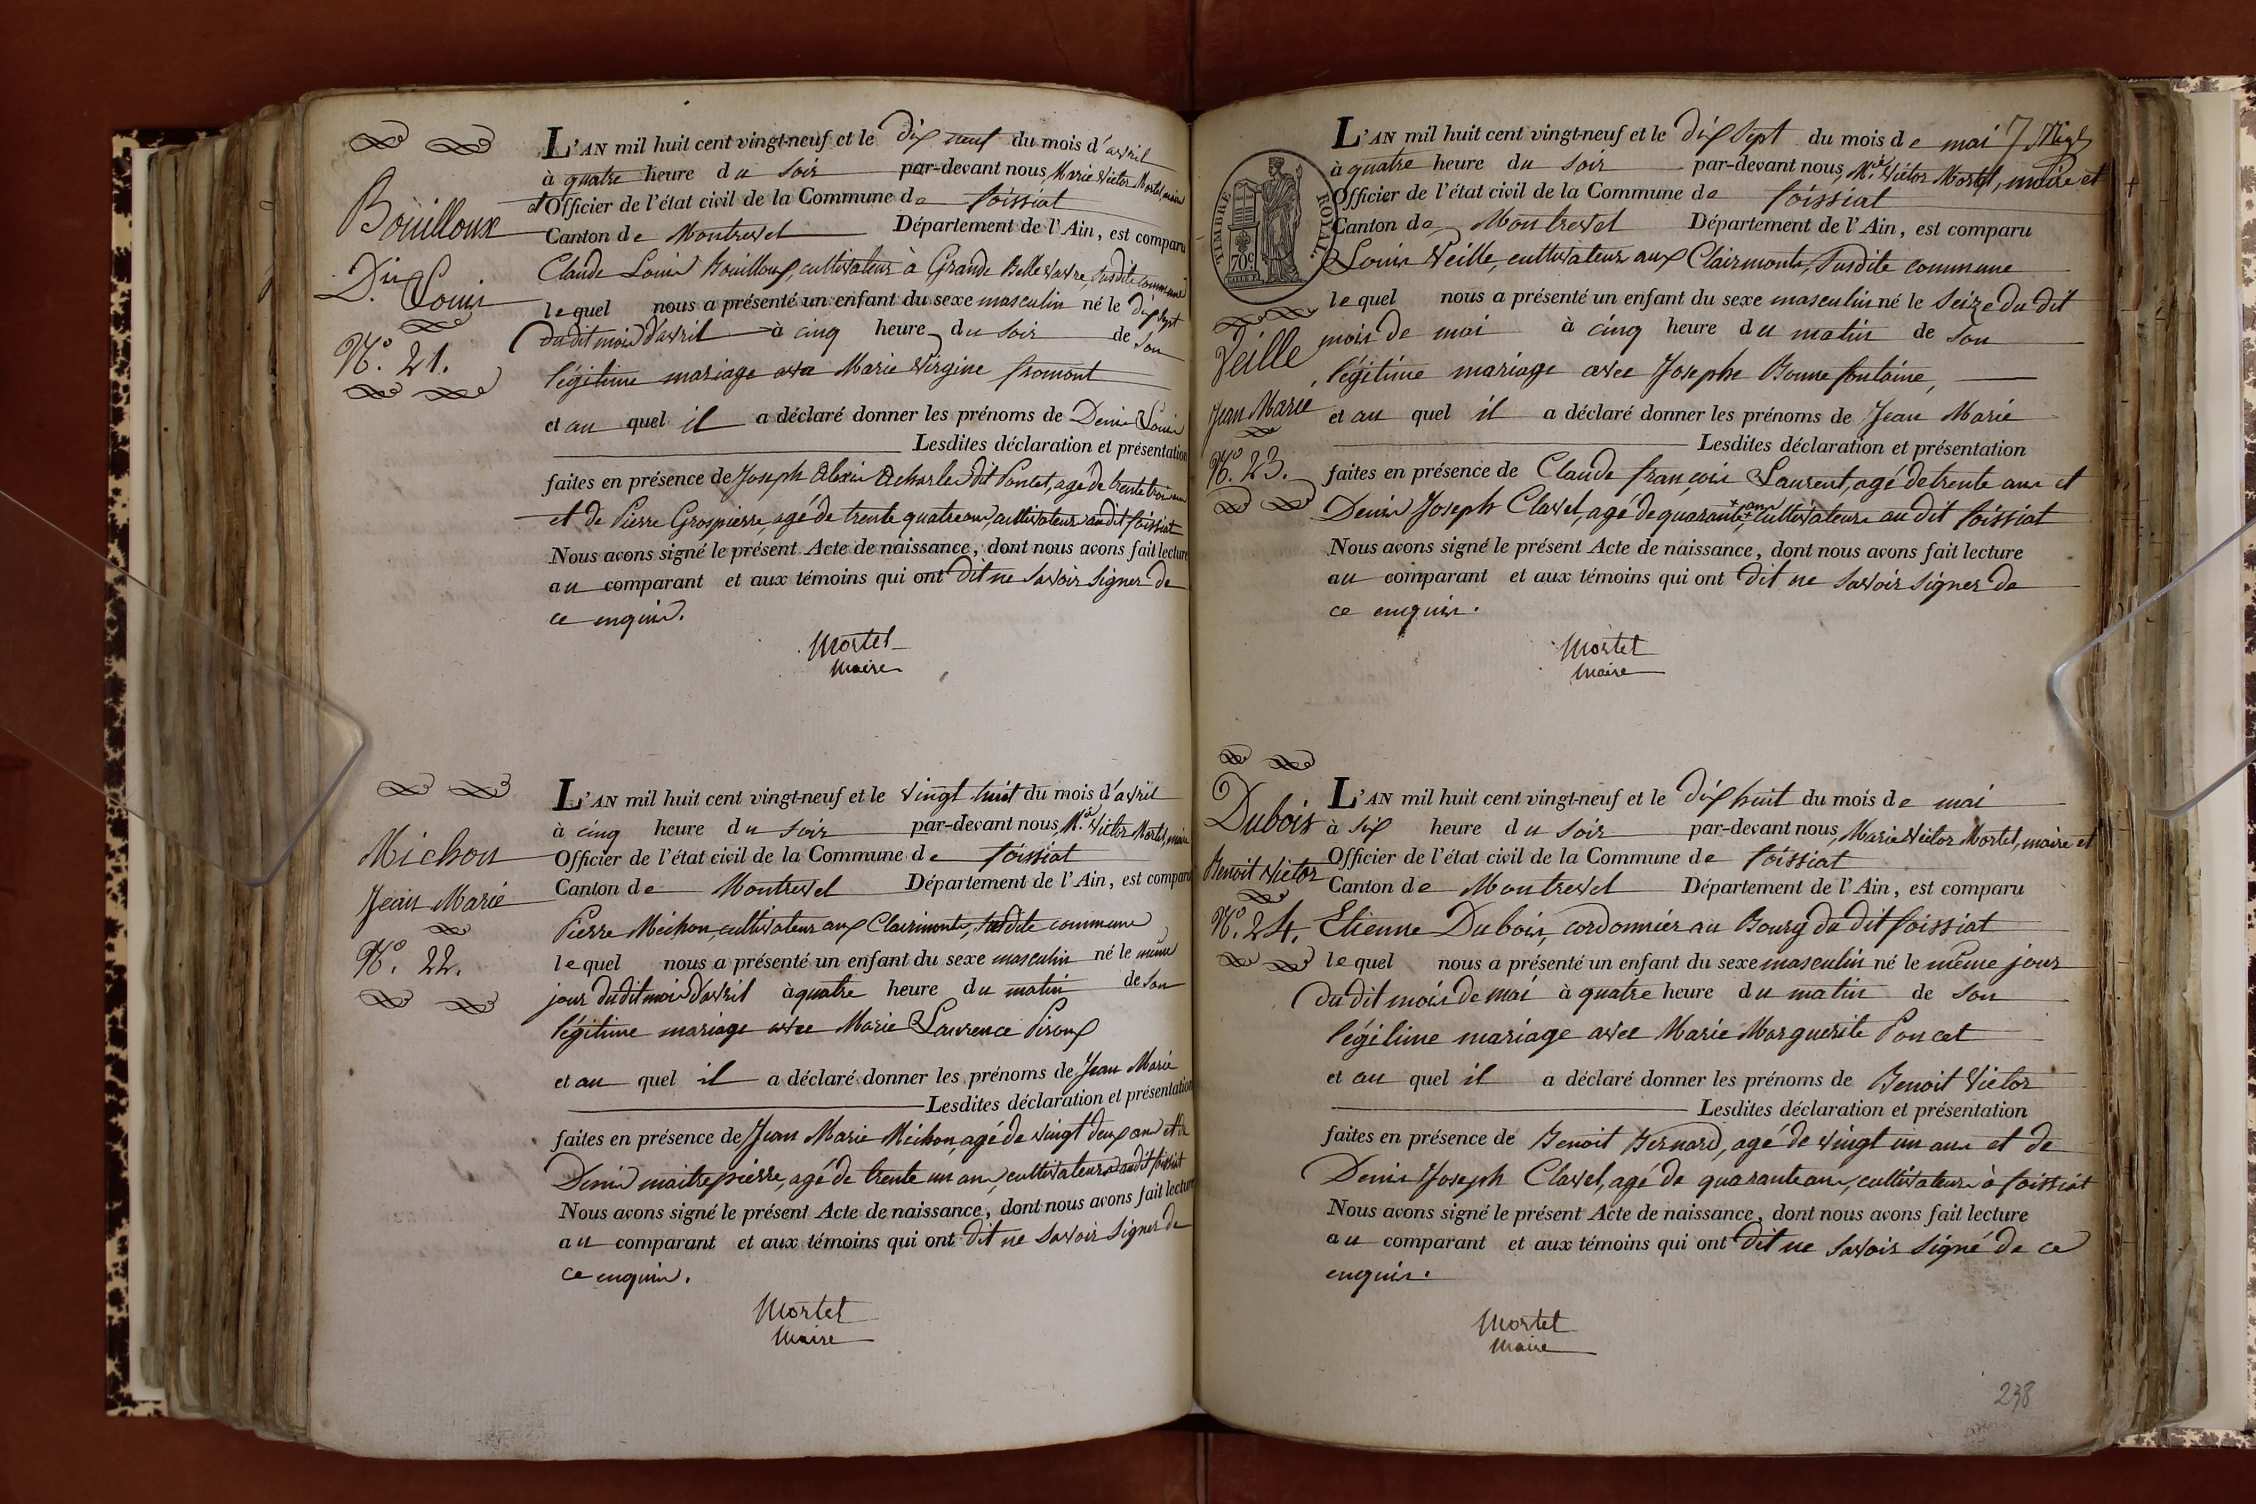 Boüilloux
D.is Louis
N.o 21.
L'AN mil huit cent vingt-neuf et le dix neuf du mois d'avril
à quatre heure du soir par-devant nous, Marie Victor Mortel, maire
et Officier de l'état civil de la Commune de foissiat
Canton de Montrevel Département de l'Ain, est comparu
Claude Louis Bouilloux, cultivateur à Grande Bellevavre, susdite commune
lequel nous a présenté un enfant du sexe masculin né le dix sept
du dit mois d'avril à cinq heure du soir de son
légitime mariage avec Marie Virgine fromont
et au quel il a déclaré donner les prénoms de Denis Louis
Lesdites déclaration et présentation
faites en présence de Joseph Alexis Acharle dit Poncet, agé de trente trois ans
et de Pierre Grospierre, agé de trente quatre ans, cultivateurs audit foissiat
Nous avons signé le présent Acte de naissance, dont nous avons fait lecture
au comparant et aux témoins qui ont dit ne savoir signer de
ce enquis.
Mortel
Maire
Michon
Jean Marie
N.o 22.
L'AN mil huit cent vingt-neuf et le vingt huit du mois d'avril
à cinq heure du soir par-devant nous, M.ie Victor Mortel, maire
Officier de l'état civil de la Commune de foissiat
Canton de Montrevel Département de l'Ain, est comparu
Pierre Michon, cultivateur aux Clairimonts, susdite commune
lequel nous a présenté un enfant du sexe masculin né le même
jour du dit mois d'avril à quatre heure du matin de son
légitime mariage avec Marie Laurence Piroux
et au quel il a déclaré donner les prénoms de Jean Marie
Lesdites déclaration et présentation
faites en présence de Jean Marie Michon, agé de vingt deux ans et de
Denis maitrepierre, agé de trente un ans, cultivateurs audit foissiat
Nous avons signé le présent Acte de naissance, dont nous avons fait lecture
au comparant et aux témoins qui ont dit ne savoir signer de
ce enquis.
Mortel
Maire
TIMBRE ROYAL
70c
Veille
Jean Marie
N.o 23.
L'AN mil huit cent vingt-neuf et le dix sept du mois de mai
à quatre heure du soir par-devant nous, M.ie Victor Mortel, maire et
Officier de l'état civil de la Commune de foissiat
Canton de Montrevel Département de l'Ain, est comparu
Louis Veille, cultivateur aux Clairmonts, susdite commune
lequel nous a présenté un enfant du sexe masculin né le seize du dit
mois de mai à cinq heure du matin de son
légitime mariage avec Josephe Bonnefontaine,
et au quel il a déclaré donner les prénoms de Jean Marie
Lesdites déclaration et présentation
faites en présence de Claude françois Laurent, agé de trente ans et
Denis Joseph Clavel, agé de quarante ans, cultivateurs audit foissiat
Nous avons signé le présent Acte de naissance, dont nous avons fait lecture
au comparant et aux témoins qui ont dit ne savoir signer de
ce enquis.
Mortel
Maire
Dubois
Benoit Victor
N.o 24.
L'AN mil huit cent vingt-neuf et le dix huit du mois de mai
à six heure du soir par-devant nous, Marie Victor Mortel, maire et
Officier de l'état civil de la Commune de foissiat
Canton de Montrevel Département de l'Ain, est comparu
Etienne Dubois, cordonnier au Bourg du dit foissiat
lequel nous a présenté un enfant du sexe masculin né le même jour
du dit mois de mai à quatre heure du matin de son
légitime mariage avec Marie Marguerite Poncet
et au quel il a déclaré donner les prénoms de Benoit Victor
Lesdites déclaration et présentation
faites en présence de Benoit Bernard, agé de vingt un ans et de
Denis Joseph Clavel, agé de quarante ans, cultivateurs à foissiat
Nous avons signé le présent Acte de naissance, dont nous avons fait lecture
au comparant et aux témoins qui ont dit ne savoir signé de ce
enquis.
Mortel
Maire
238